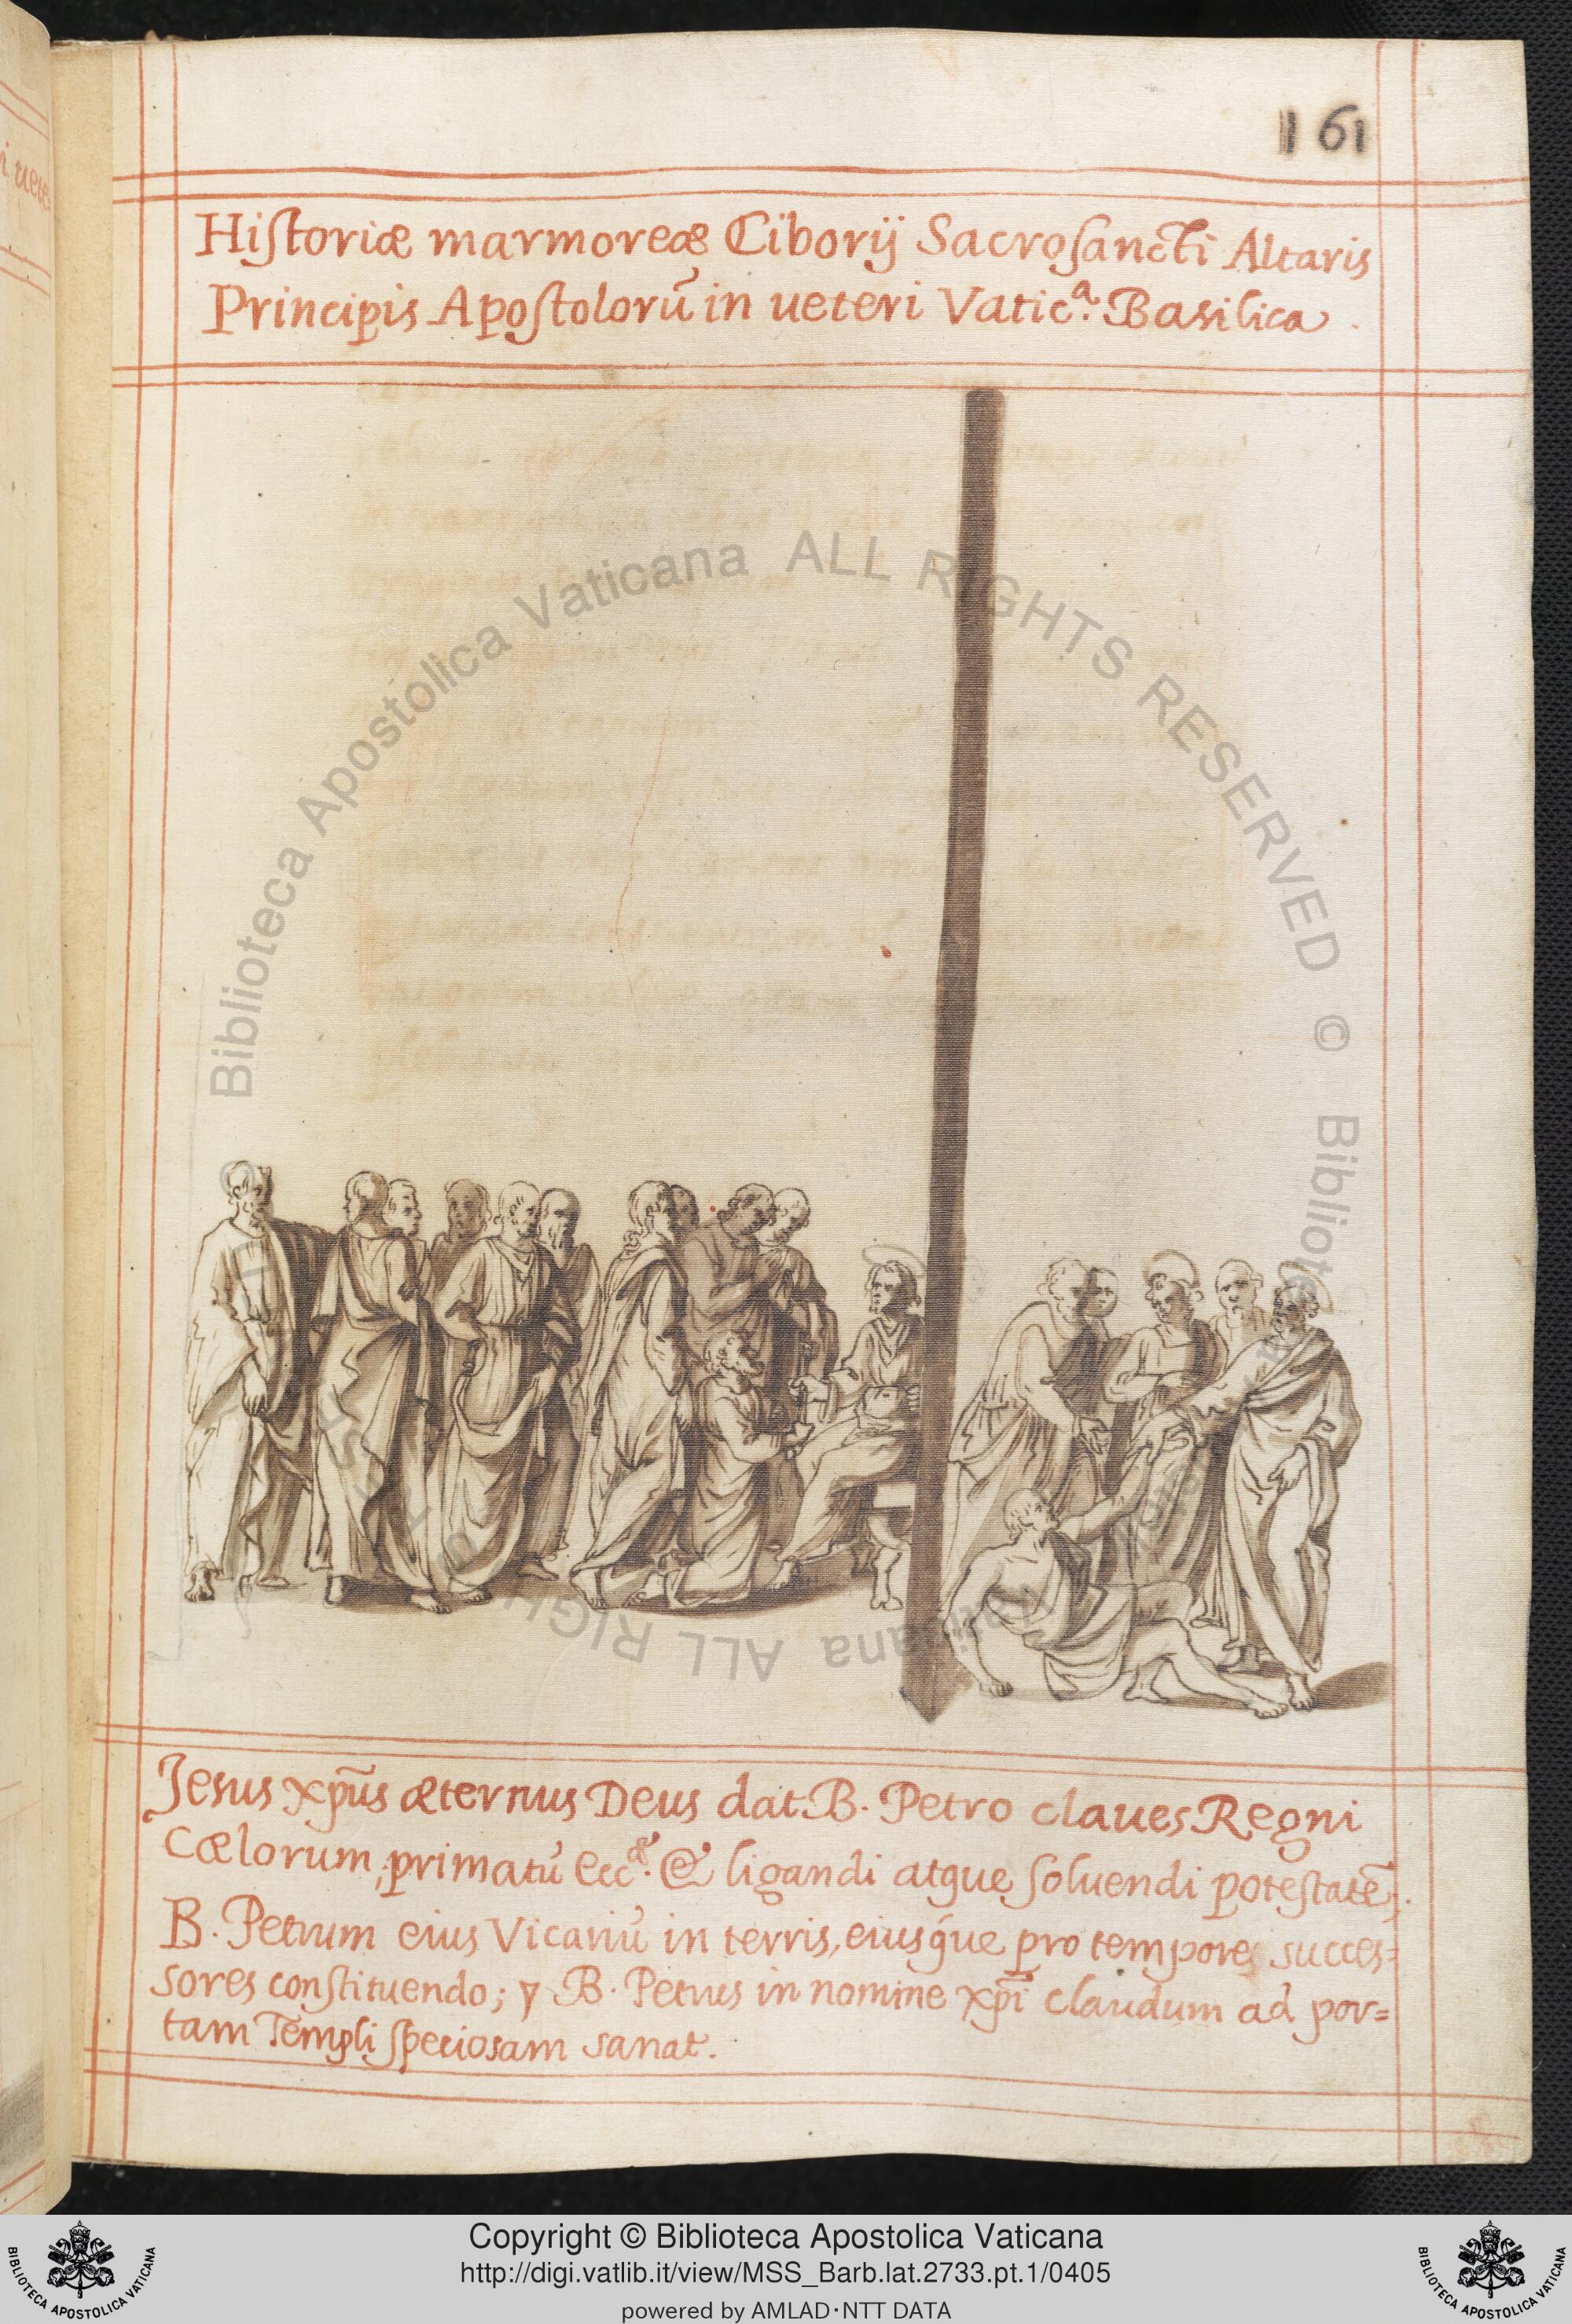 161
Hiſtoriæ marmoreæ Ciborij Sacroſancti Altaris
Principis Apoſtolorū in ueteri Vatic.ª Basilica
Biblioteca Apostolica Vaticana ALL RIGHTS RESERVED ©
Jesus xp̄us æternus Deus dat B. Petro claues Regni
Cælorum, primatū Ecc.æ & ligandi atque ſoluendi poteſtatē,
B. Petrum eius Vicariū in terris, eiusque pro tempore succes=
sores conſtituendo; y B. Petrus in nomine xp̄i claudum ad por=
tam Templi ſpeciosam sanat.
Copyright © Biblioteca Apostolica Vaticana
http://digi.vatlib.it/view/MSS_Barb.lat.2733.pt.1/0405
powered by AMLAD·NTT DATA
BIBLIOTECA APOSTOLICA VATICANA
BIBLIOTECA APOSTOLICA VATICANA